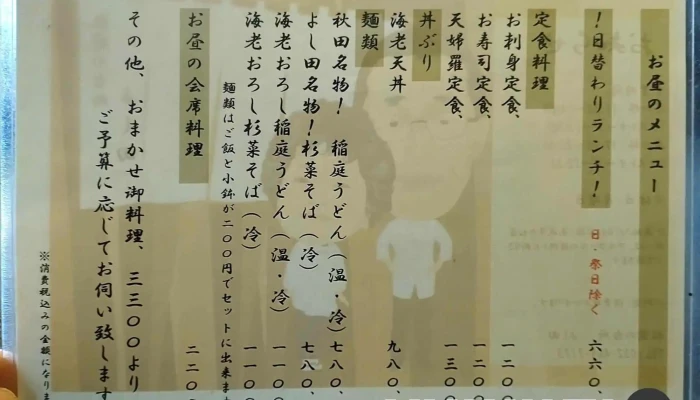 お昼のメニュー
！日替わりランチ！ 日・祭日除く 六六〇、
定食料理
お刺身定食、 一二〇〇
お寿司定食、 一二〇〇
天婦羅定食、 一三〇〇
丼ぶり
海老天丼 九八〇、
麺類
秋田名物！ 稲庭うどん（温・冷）七八〇、
よし田名物！杉菜そば（冷） 七八〇、
海老おろし稲庭うどん（温・冷） 一一〇〇
海老おろし杉菜そば（冷） 一一〇〇
麺類はご飯と小鉢が二〇〇円でセットに出来ます
お昼の会席料理 二二〇
その他、 おまかせ御料理、 三三〇〇より
ご予算に応じてお伺い致します
※消費税込みの金額になりま